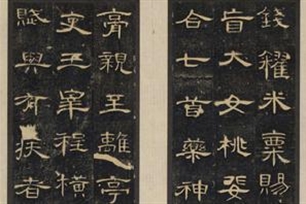 錢糴米粟賜
盲大女桃婓
合七首藥神
膏親至離亭
吏王宰程橫
賦與有疾者